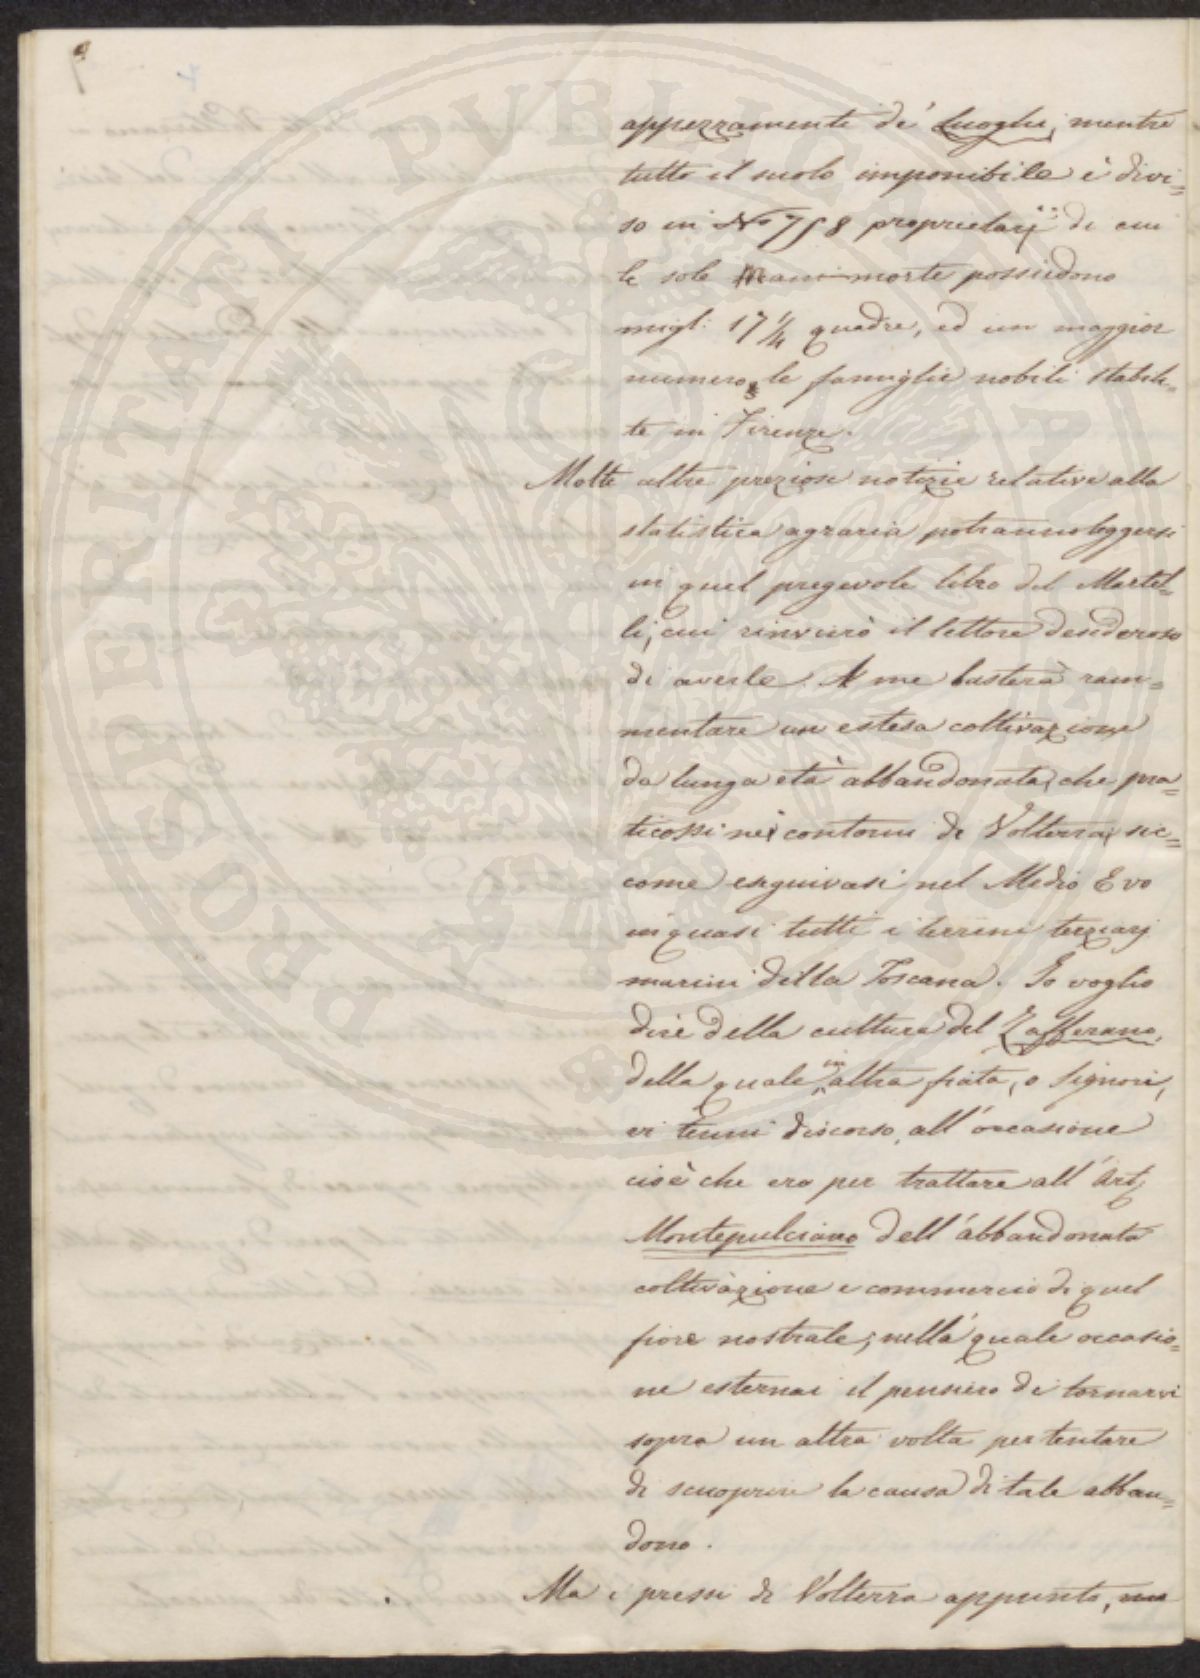 appezzamenti de' Luoghi, mentre
tutto il suolo imponibile è divi=
so in N.º 758 proprietarj di cui
le sole Mani-morte possiedono
migl: 17 1/4 quadre, ed un maggior
numero, le famiglie nobili stabili=
te in Firenze.
Molte altre preziose notizie relative alla
statistica agraria potranno leggersi
in quel pregevole libro del Martel=
li, cui rinvierò il lettore desideroso
di averle. A me basterà ram=
mentare un estesa coltivazione
da lunga età abbandonata, che pra=
ticossi nei contorni di Volterra, sic=
come eseguivasi nel Medio Evo
in quasi tutti i terreni terziarj
marini della Toscana. Io voglio
dire della cultura del Zafferano,
della quale in altra fiata, o Signori,
vi tenni discorso, all'occasione
cioè che era per trattare all'Art.
Montepulciano dell'abbandonata
coltivazione e commercio di quel
fiore nostrale; nella quale occasio=
ne esternai il pensiero di tornarvi
sopra un altra volta per tentare
di scuoprire la causa di tale abban=
dono.
Ma i pressi di Volterra appunto,
PROSPERITATI PVBLICAE AVGENDAE